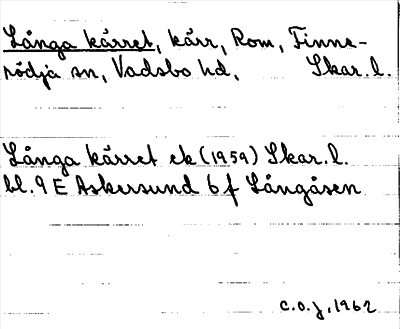 Långa kärret, kärr, Rom, Finne-
rödja sn, Vadsbo hd, Skar. l.
Långa kärret ek (1959) Skar. l.
bl. 9 E Askersund 6 f Långåsen
C.O.J. 1962